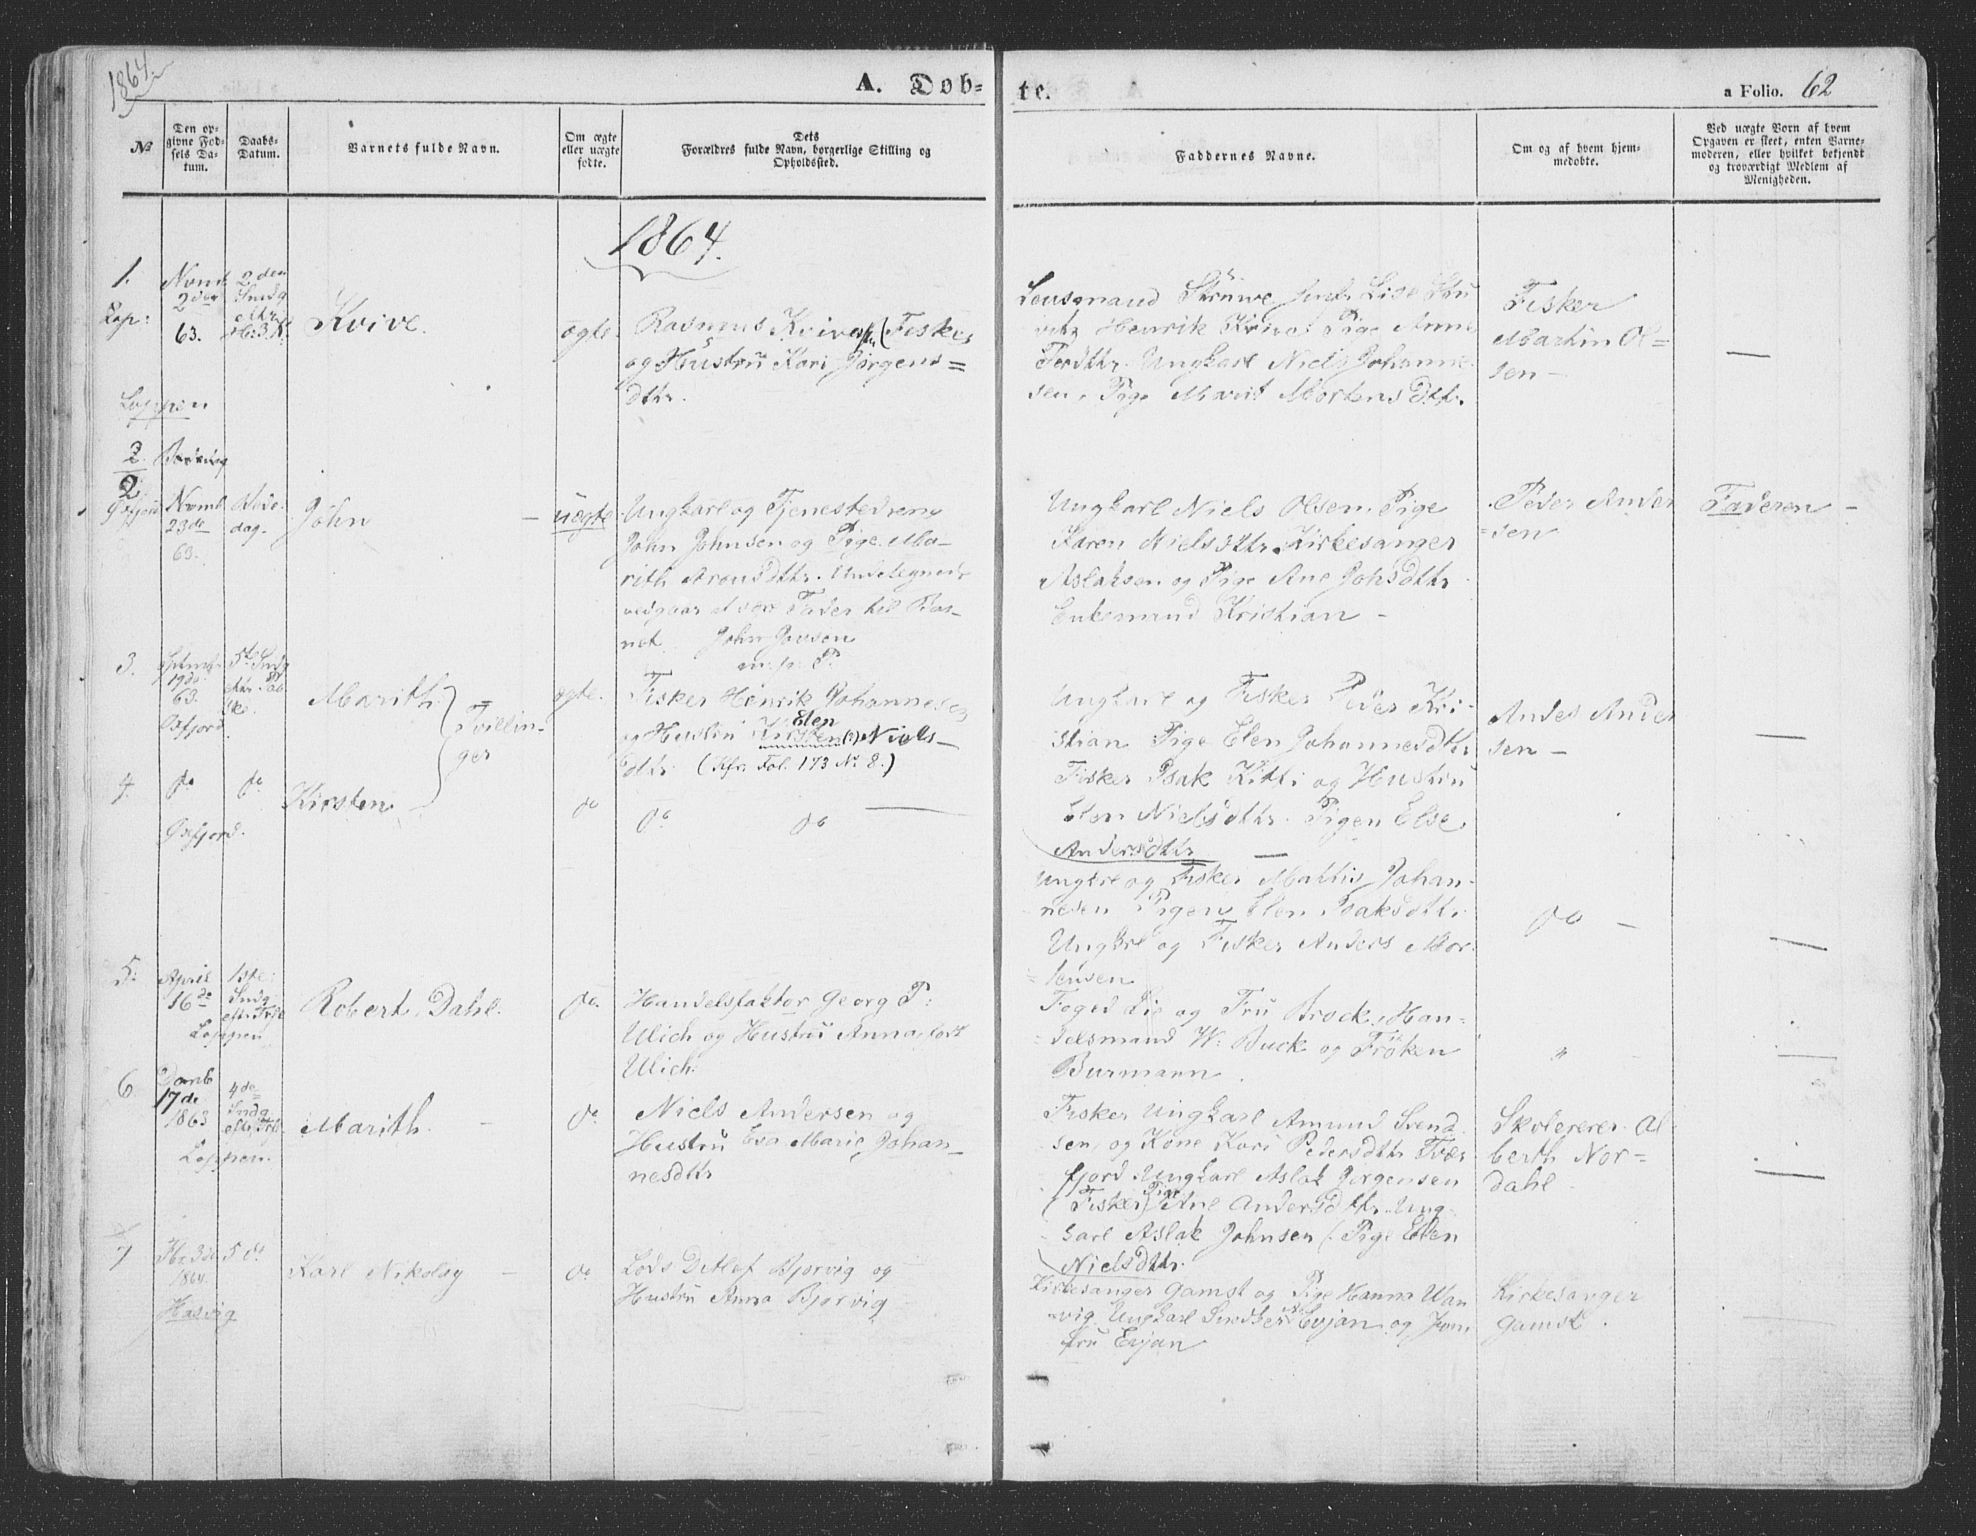 1864
A. Døb-
te.
a Folio. 62
No
Den op-
givne Fød-
sels Da-
tum.
Daabs-
Datum.
Barnets fulde Navn.
Om ægte
eller uægte
fødte.
Dets
Forældres fulde Navn, borgerlige Stilling og
Opholdssted.
Faddernes Navne.
Om og af hvem hjem-
medøbte.
Ved uægte Børn af hvem
Opgaven er skeet, enten Barne-
moderen, eller hvilket bekjendt
og troværdigt Medlem af
Menigheden.
1864.
1.
Novmb
2den
63.
2den
Sndg
eftr
H. 3 K.
Kvive.
ægte.
Rasmus Kvive (Fisker
og Hustru Kari Jørgens=
dttr.
Lensmand Strüwe Jomfr. Lise
Henrik Kvive. Pige Anne
Perdttr. Ungkarl Niels Johanne
sen, Pige Marit Mortensdttr.
Fisker
Martin Ol=
sen -
Loppen
2.
2
Øxfjord
Novmb
23de
63.
Bede-
dag.
John
uægte
Ungkarl og Tjenestedreng
John Johnsen og Pige Ma-
rith Aronsdttr. Undetegnede
vedgaar at være Fader til Bar-
net John Jonsen
m. p. P.
Ungkarl Niels Olsen. Pige
Karen Nielsdttr. Kirkesanger
Aslaksen og Pige Ane Johsdttr
Enkemand Kristian -
Peder Ander
=sen
Faderen -
3.
Septmbr
19de
63.
Øxfjord
5te Sndg
eftr. Paa
ske.
Marith
Tvillin-
ger
ægte.
Fisker Henrik Johannesen
og Hustru Kirsten (?) Niels-
Elen
dttr. (Kfr. Fol. 173 No 8.)
Ungkarl og Fisker Peder Kri-
stian Pige Elen Johannesdttr
Fisker Isak Kitti og Hustru
Elen Nielsdttr. Pigen Else
Andersdttr
Anders Ander
sen -
4.
do
Øxfjord.
do
Kirsten
do
do do
Ungkrl og Fisker Mattis Johan-
nesen Pigen Elen Isaksdttr.
Ungkrl og Fisker Anders Mor-
tensen
do -
5.
April
16de
Loppen
1ste
Sndg
eftr. Trft
Robert Dahl.
do.
Handelsfaktor Georg P:
Ulich og Hustru Anna, født
Ulich.
Foged Lie og Fru Brock, Han-
delsmand W. Buck og Frøken
Burmann.
"
6
Decmb
17de
1863
Loppen.
4de
Sndg
eftr. Trft.
Marith.
do
Niels Andersen og
Hustru Eva Marie Johan-
nesdttr
Fisker Ungkarl Amund Svend-
sen, og Kone Kari Pedersdttr Tvær
fjord. Ungkarl Aslak Jørgensen
(Fisker) Pige Ane Andersdttr. Ung-
karl Aslak Johnsen (. Pige Elen
Nielsdttr.
Skolelærer Al-
berth Nor=
dahl
7
Fbr 3de
1864.
Hasvig
5 do
Karl Nikolay -
do
Lods Detlef Bjørvig og
Hustru Anna Bjørvig
Kirkesanger Gamst og Pige Hanna Wan
vig. Ungkarl Evjan og Jom-
fru Evjan
Kirkesanger
Gamst.